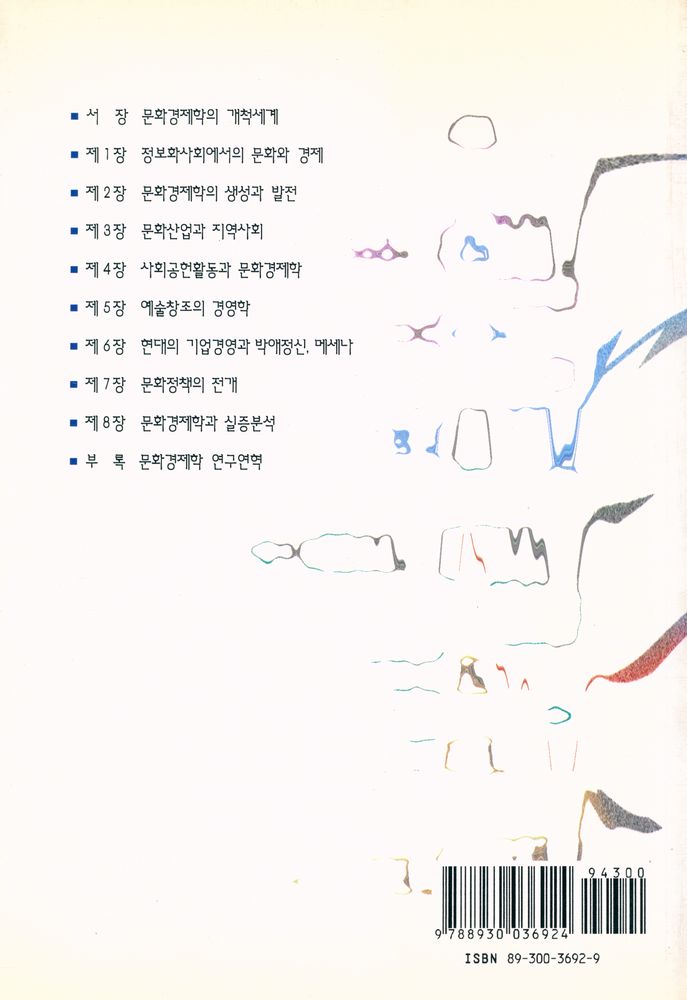 ■ 서 장 문화경제학의 개척세계
■ 제1장 정보화사회에서의 문화와 경제
■ 제2장 문화경제학의 생성과 발전
■ 제3장 문화산업과 지역사회
■ 제4장 사회공헌활동과 문화경제학
■ 제5장 예술창조의 경영학
■ 제6장 현대의 기업경영과 박애정신, 메세나
■ 제7장 문화정책의 전개
■ 제8장 문화경제학과 실증분석
■ 부 록 문화경제학 연구연혁
94300
9 788930 036924
ISBN 89-300-3692-9